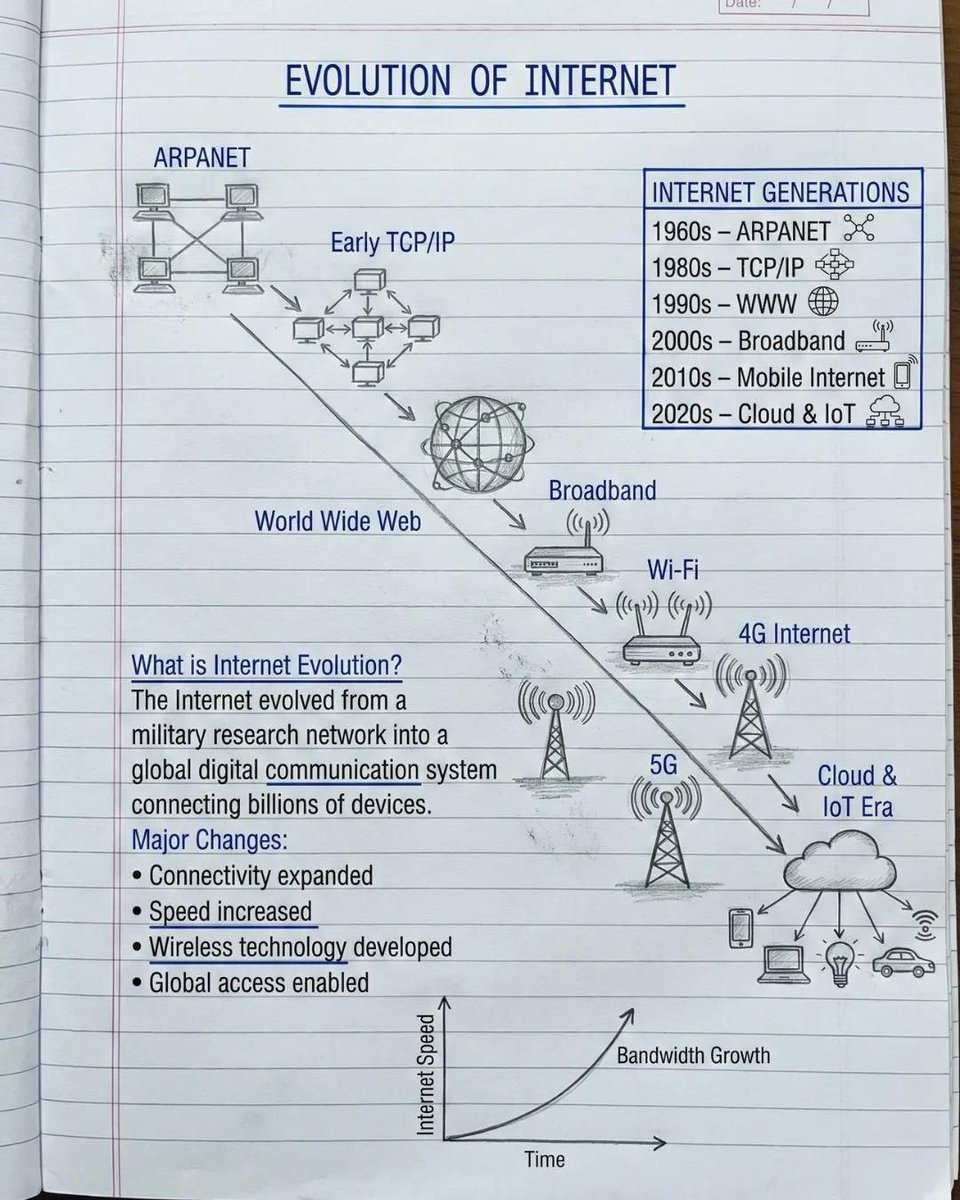 Date: / /
EVOLUTION OF INTERNET
ARPANET
Early TCP/IP
World Wide Web
Broadband
Wi-Fi
4G Internet
5G
Cloud &
IoT Era
INTERNET GENERATIONS
1960s – ARPANET
1980s – TCP/IP
1990s – WWW
2000s – Broadband
2010s – Mobile Internet
2020s – Cloud & IoT
What is Internet Evolution?
The Internet evolved from a
military research network into a
global digital communication system
connecting billions of devices.
Major Changes:
• Connectivity expanded
• Speed increased
• Wireless technology developed
• Global access enabled
Internet Speed
Bandwidth Growth
Time